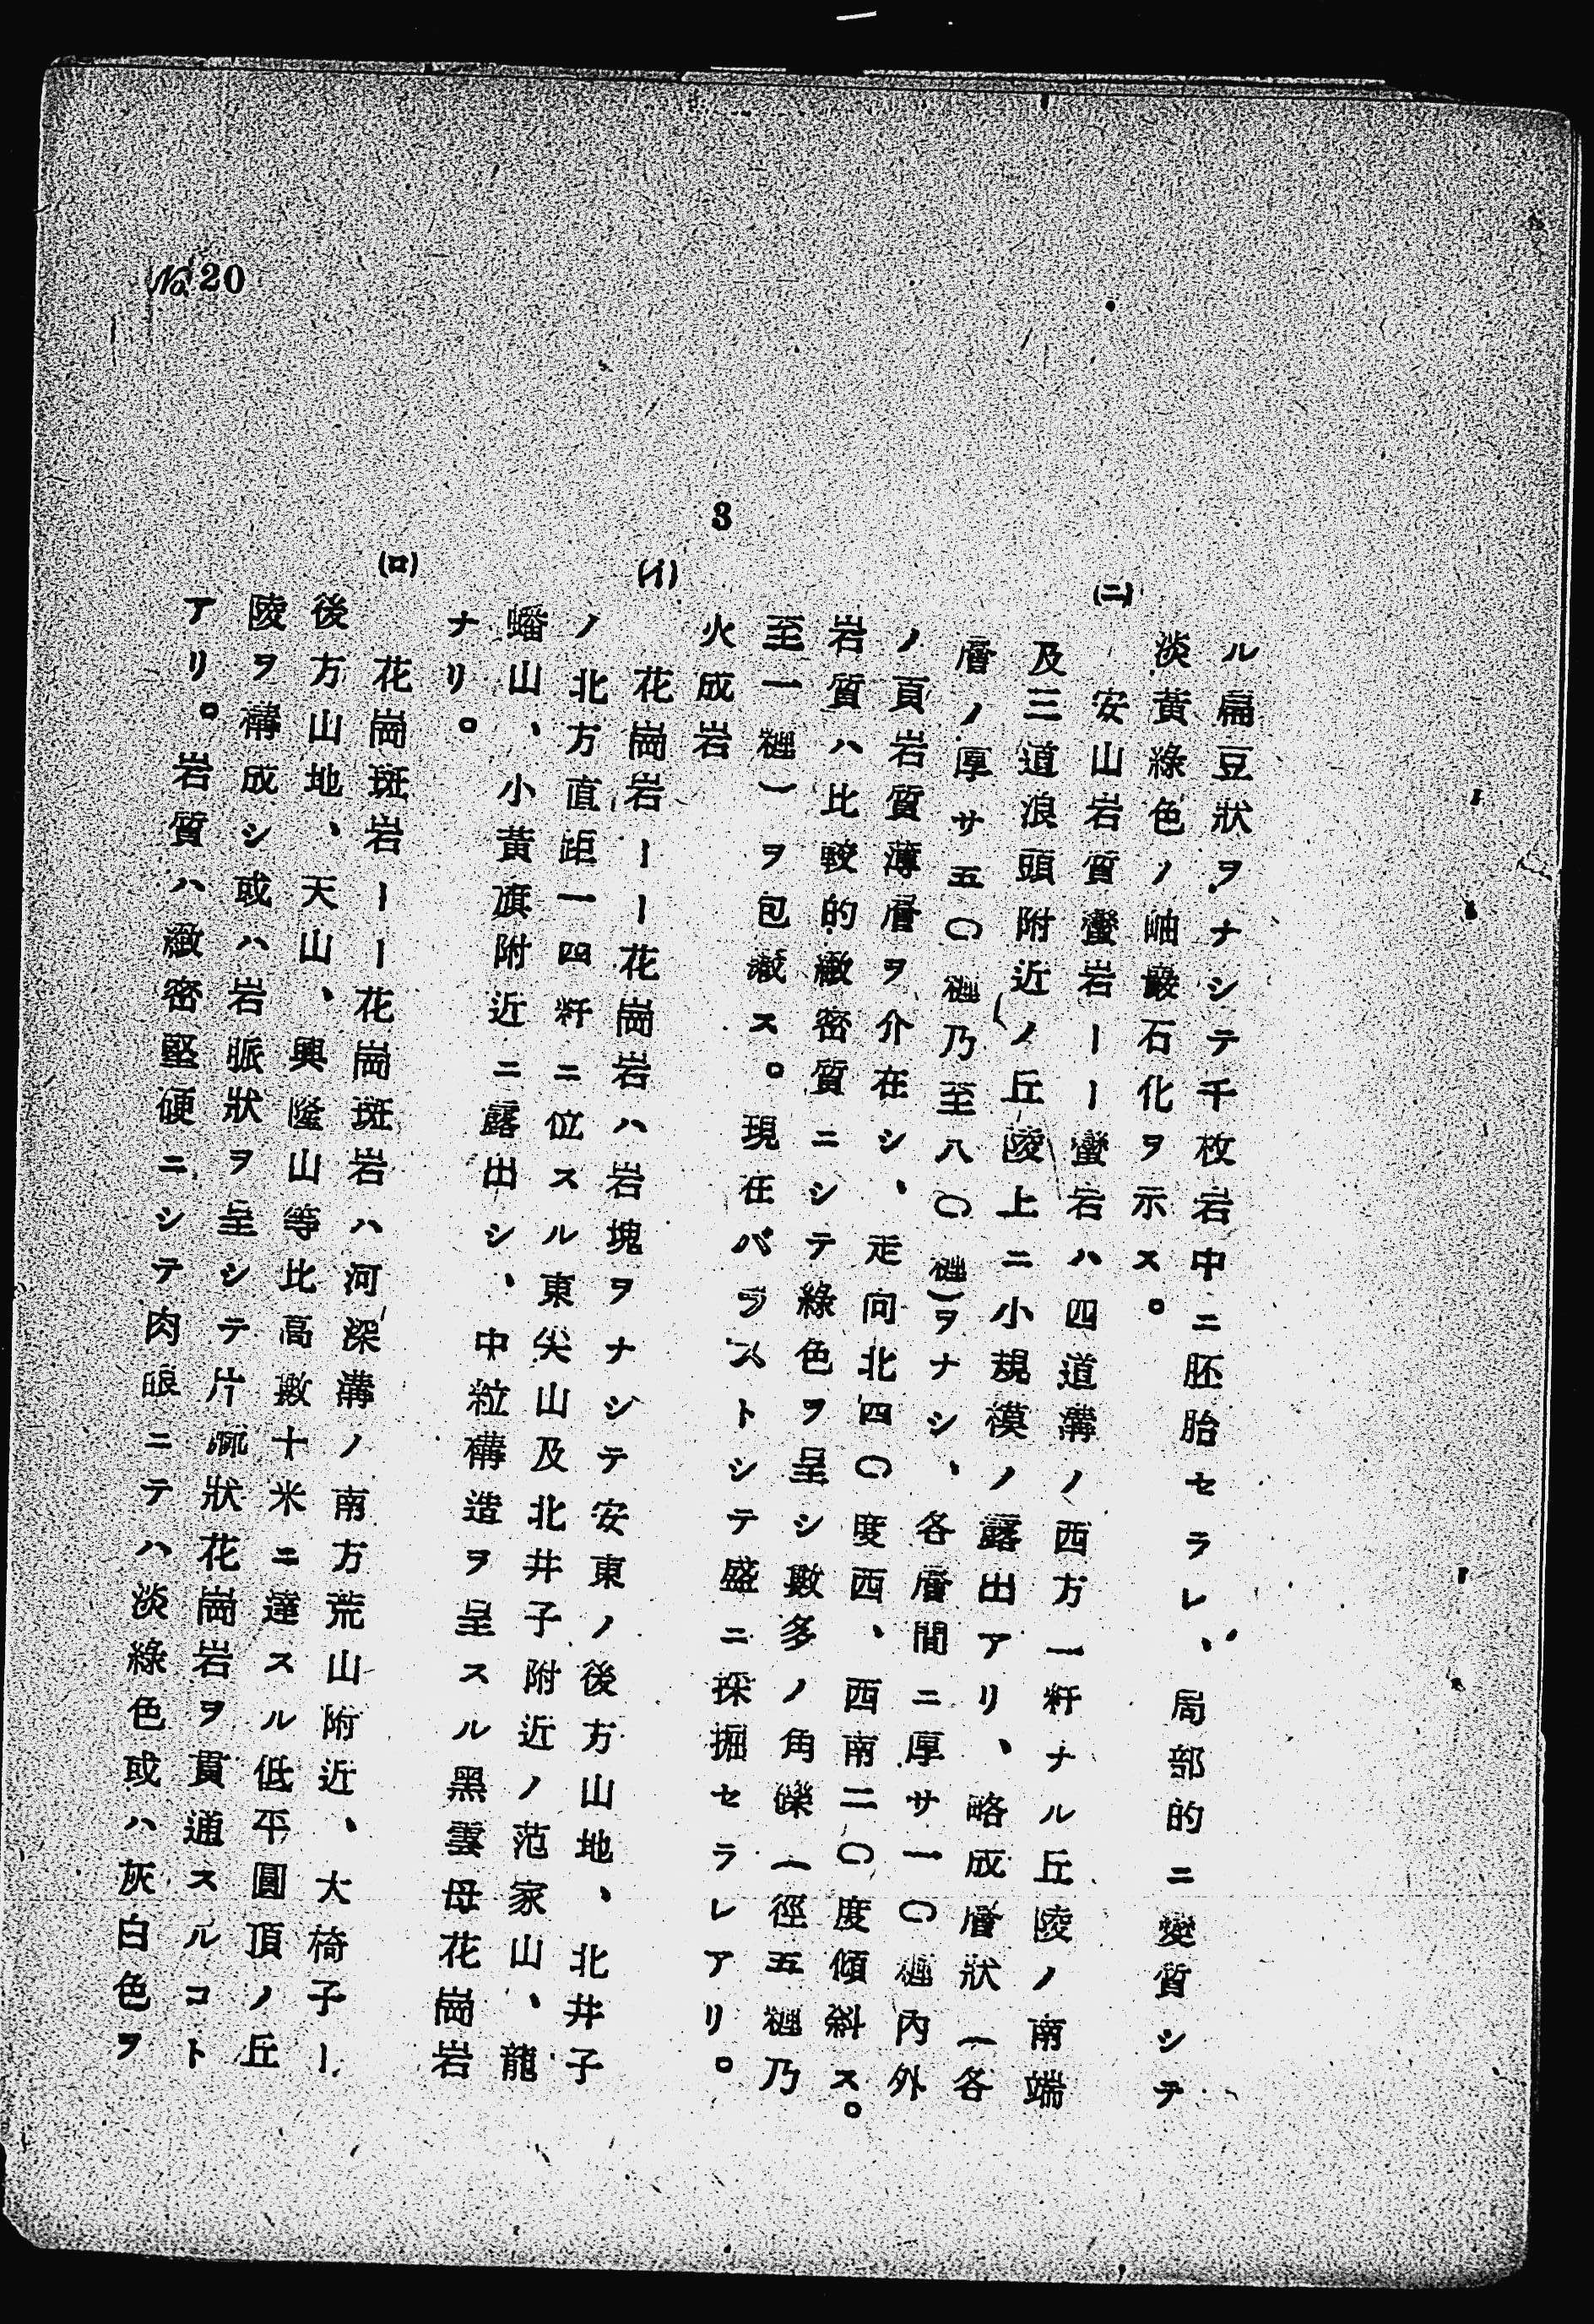 ル扁豆狀ヲナシテ千枚岩中ニ胚胎セラレ、局部的ニ變質シテ
淡黃綠色ノ岫巖石化ヲ示ス。
(ニ) 安山岩質蠻岩ーー蠻岩ハ四道溝ノ西方一粁ナル丘陵ノ南端
及三道浪頭附近ノ丘陵上ニ小規模ノ露出アリ、略成層狀(各
層ノ厚サ五〇糎乃至八〇糎)ヲナシ、各層間ニ厚サ一〇糎內外
ノ頁岩質薄層ヲ介在シ、走向北四〇度西、西南二〇度傾斜ス。
岩質ハ比較的緻密質ニシテ綠色ヲ呈シ數多ノ角礫(徑五糎乃
至一糎)ヲ包藏ス。現在バラストシテ盛ニ採掘セラレアリ。
3 火成岩
(イ) 花崗岩ーー花崗岩ハ岩塊ヲナシテ安東ノ後方山地、北井子
ノ北方直距一四粁ニ位スル東尖山及北井子附近ノ范家山、龍
蟠山、小黃旗附近ニ露出シ、中粒構造ヲ呈スル黑雲母花崗岩
ナリ。
(ロ) 花崗斑岩ーー花崗斑岩ハ河深溝ノ南方荒山附近、大椅子ー
後方山地、天山、興隆山等比高數十米ニ達スル低平圓頂ノ丘
陵ヲ構成シ或ハ岩脈狀ヲ呈シテ片麻狀花崗岩ヲ貫通スルコト
アリ。岩質ハ緻密堅硬ニシテ肉眼ニテハ淡綠色或ハ灰白色ヲ
No. 20